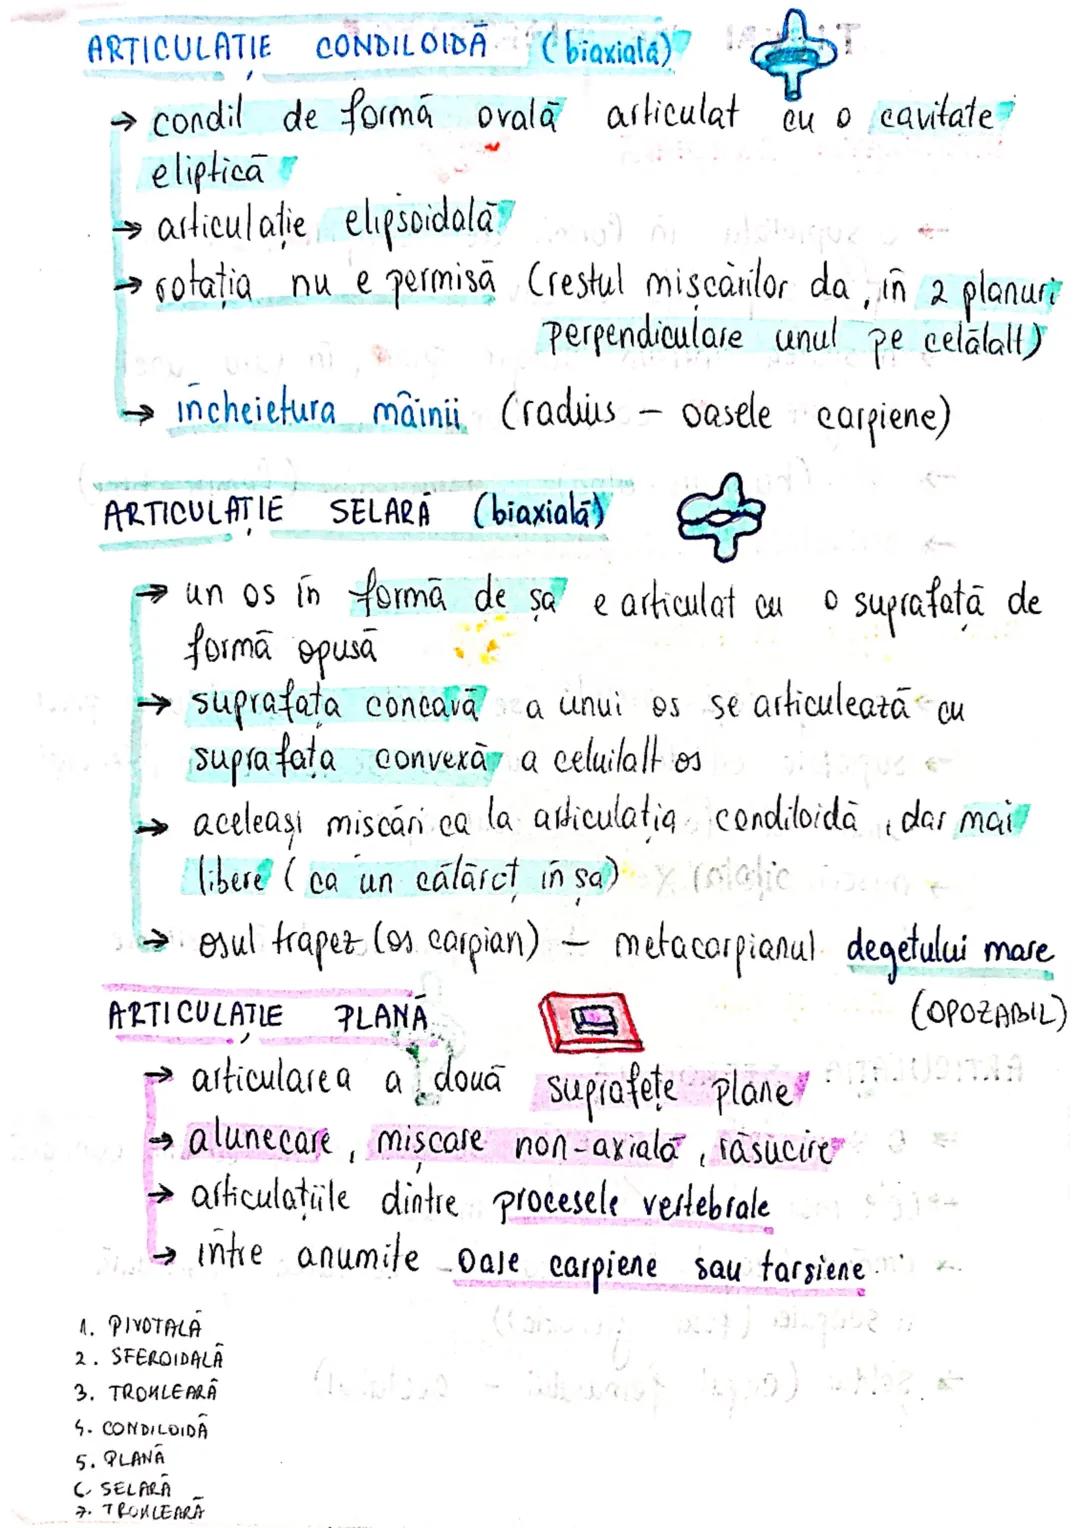 ARTICULAȚIE CONDILOIDĂ (biaxială)
→ condil de formă ovală articulat cu o cavitate
eliptică
→ articulație elipsoidală
→ rotația nu e permisă (restul mișcărilor da, în 2 planuri
perpendiculare unul pe celălalt)
→ încheietura mâinii (radius – oasele carpiene)
ARTICULAȚIE SELARĂ (biaxială)
→ un os în formă de șa e articulat cu o suprafață de
formă opusă
→ suprafața concavă a unui os se articulează cu
suprafața convexă a celuilalt os
→ aceleași miscări ca la articulația condiloidă, dar mai
libere (ca un călăreț în șa)
→ osul trapez (os carpian) – metacarpianul degetului mare
(OPOZABIL)
ARTICULAȚIE PLANĂ
→ articularea a două suprafețe plane
→ alunecare, mișcare non-axială, răsucire
→ articulațiile dintre procesele vertebrale
→ între anumite oase carpiene sau tarsiene
1. PIVOTALĂ
2. SFEROIDALĂ
3. TROHLEARĂ
4. CONDILOIDĂ
5. PLANĂ
6. SELARĂ
7. TROHLEARĂ